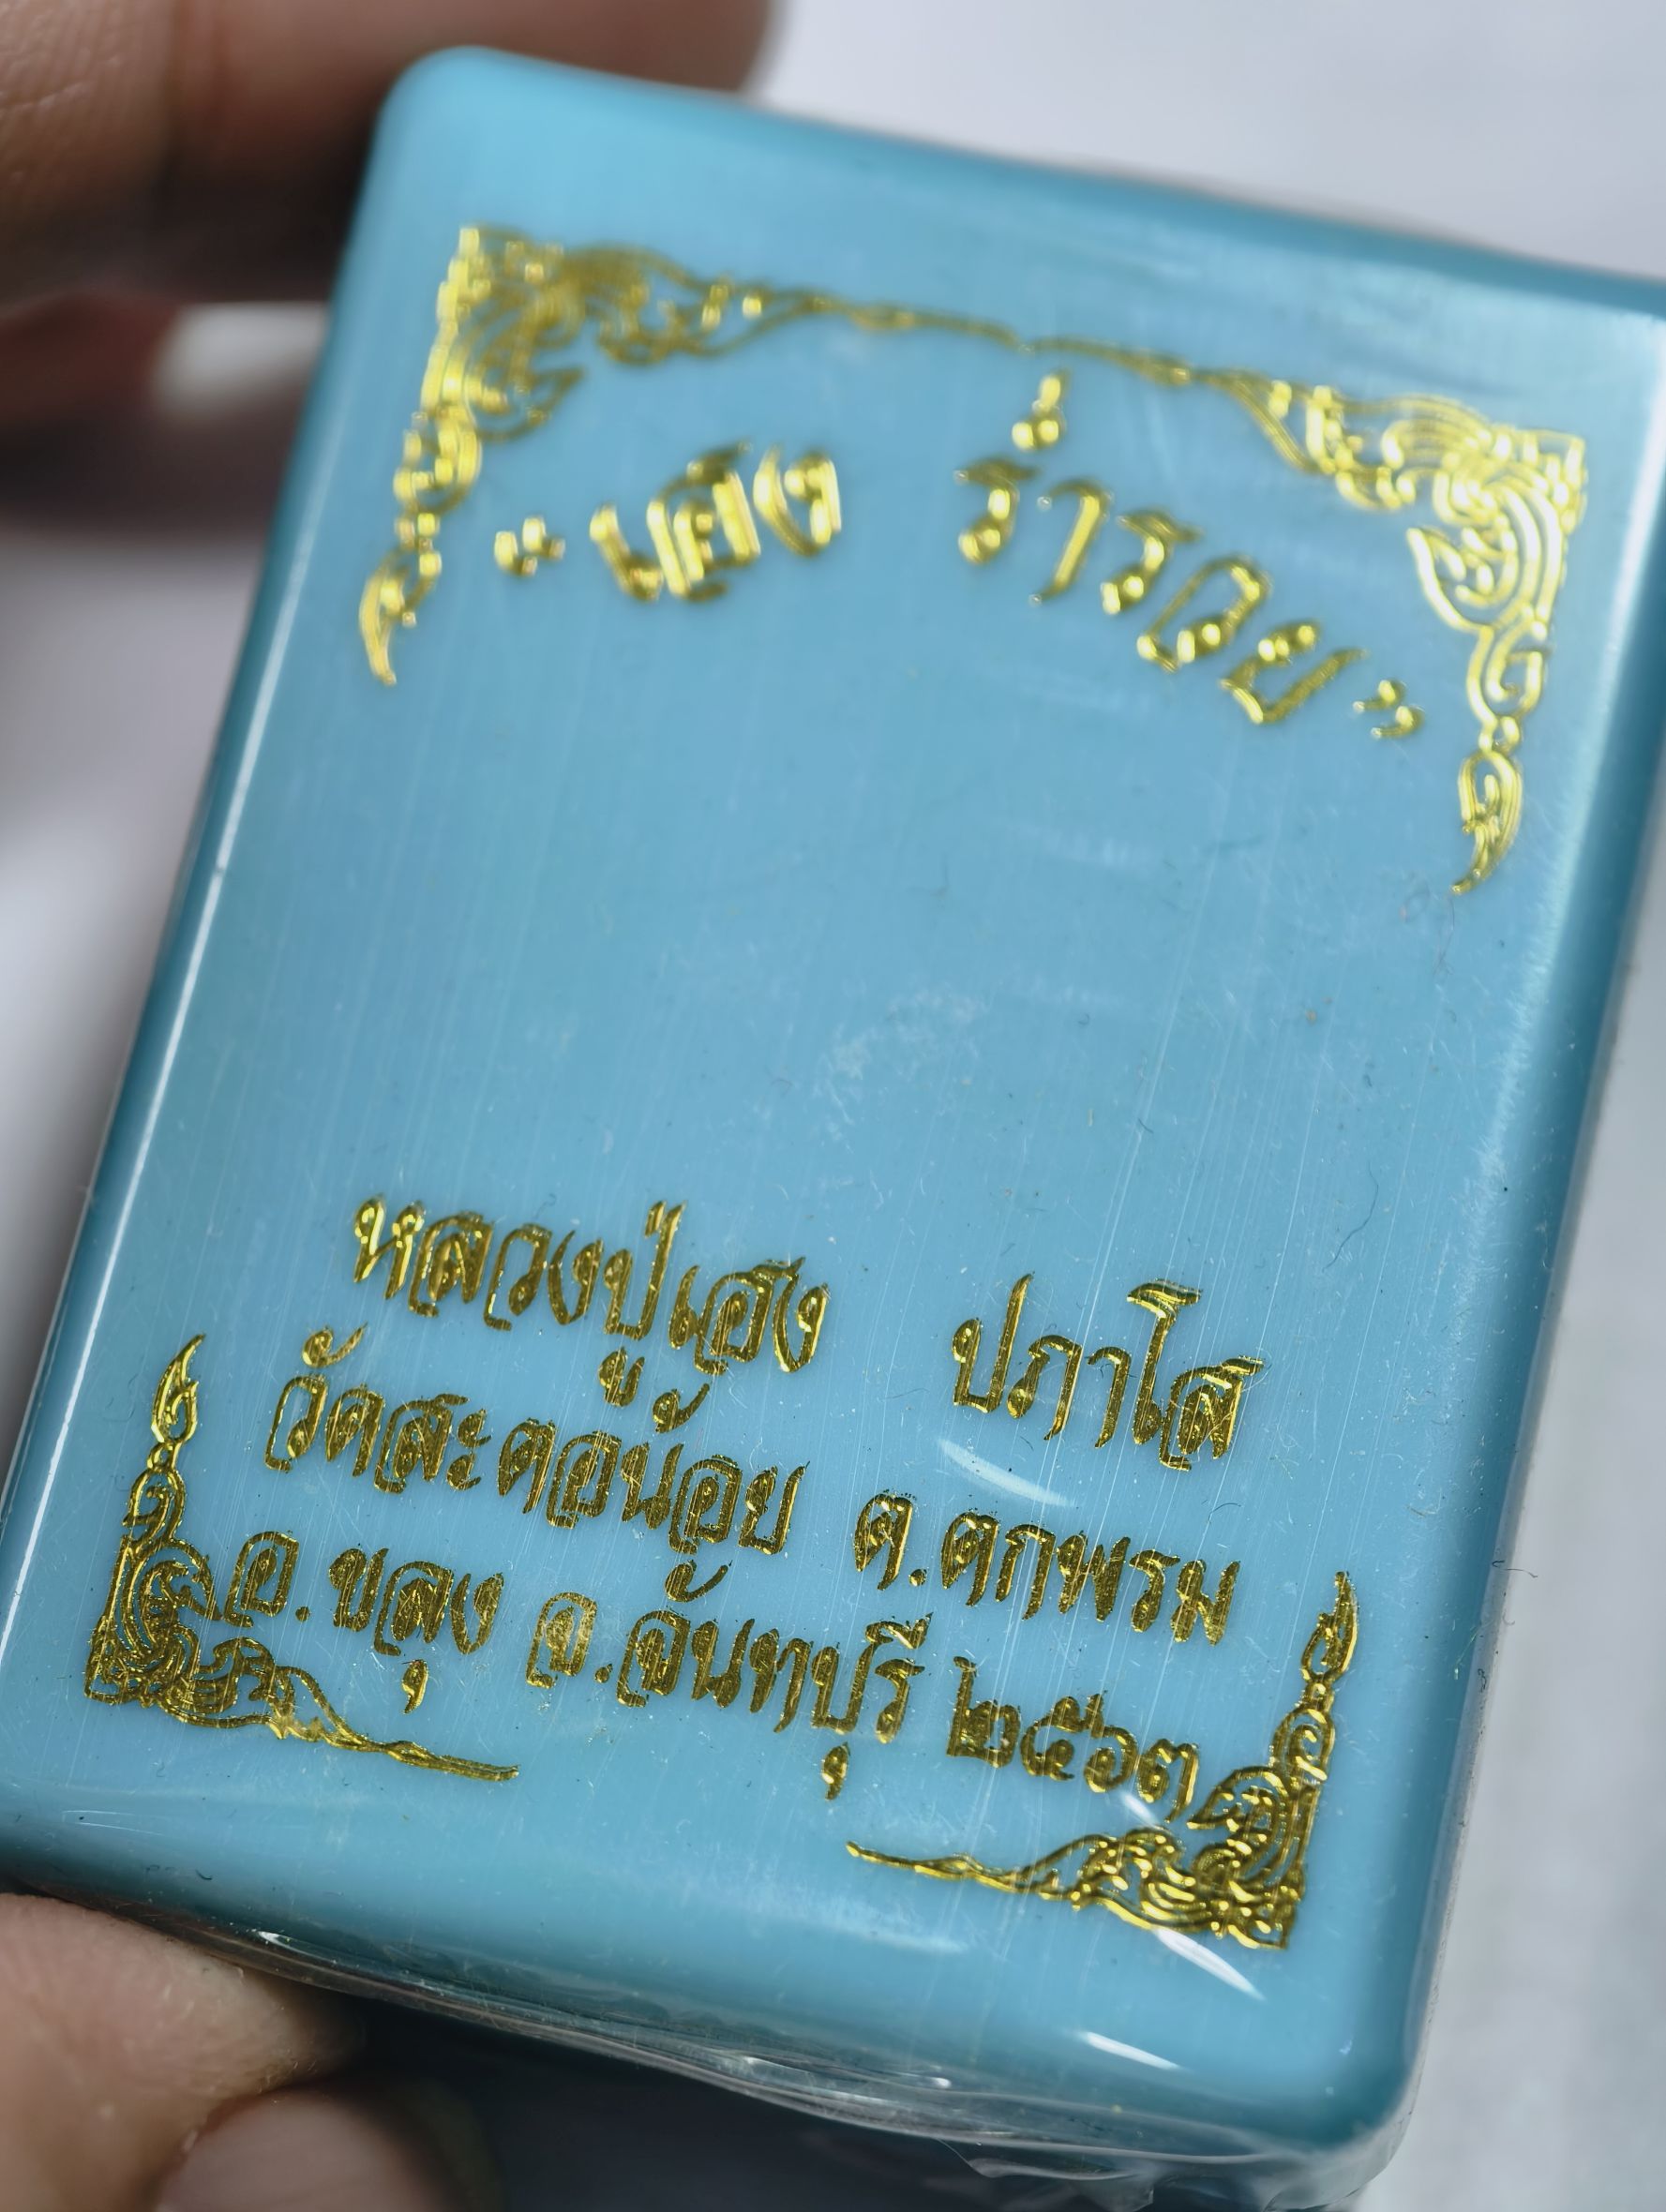 “เฮง ร่ำรวย”
หลวงปู่เฮง ปภาโส
วัดสะตอน้อย ต.ตกพรม
อ.ขลุง จ.จันทบุรี ๒๕๖๓